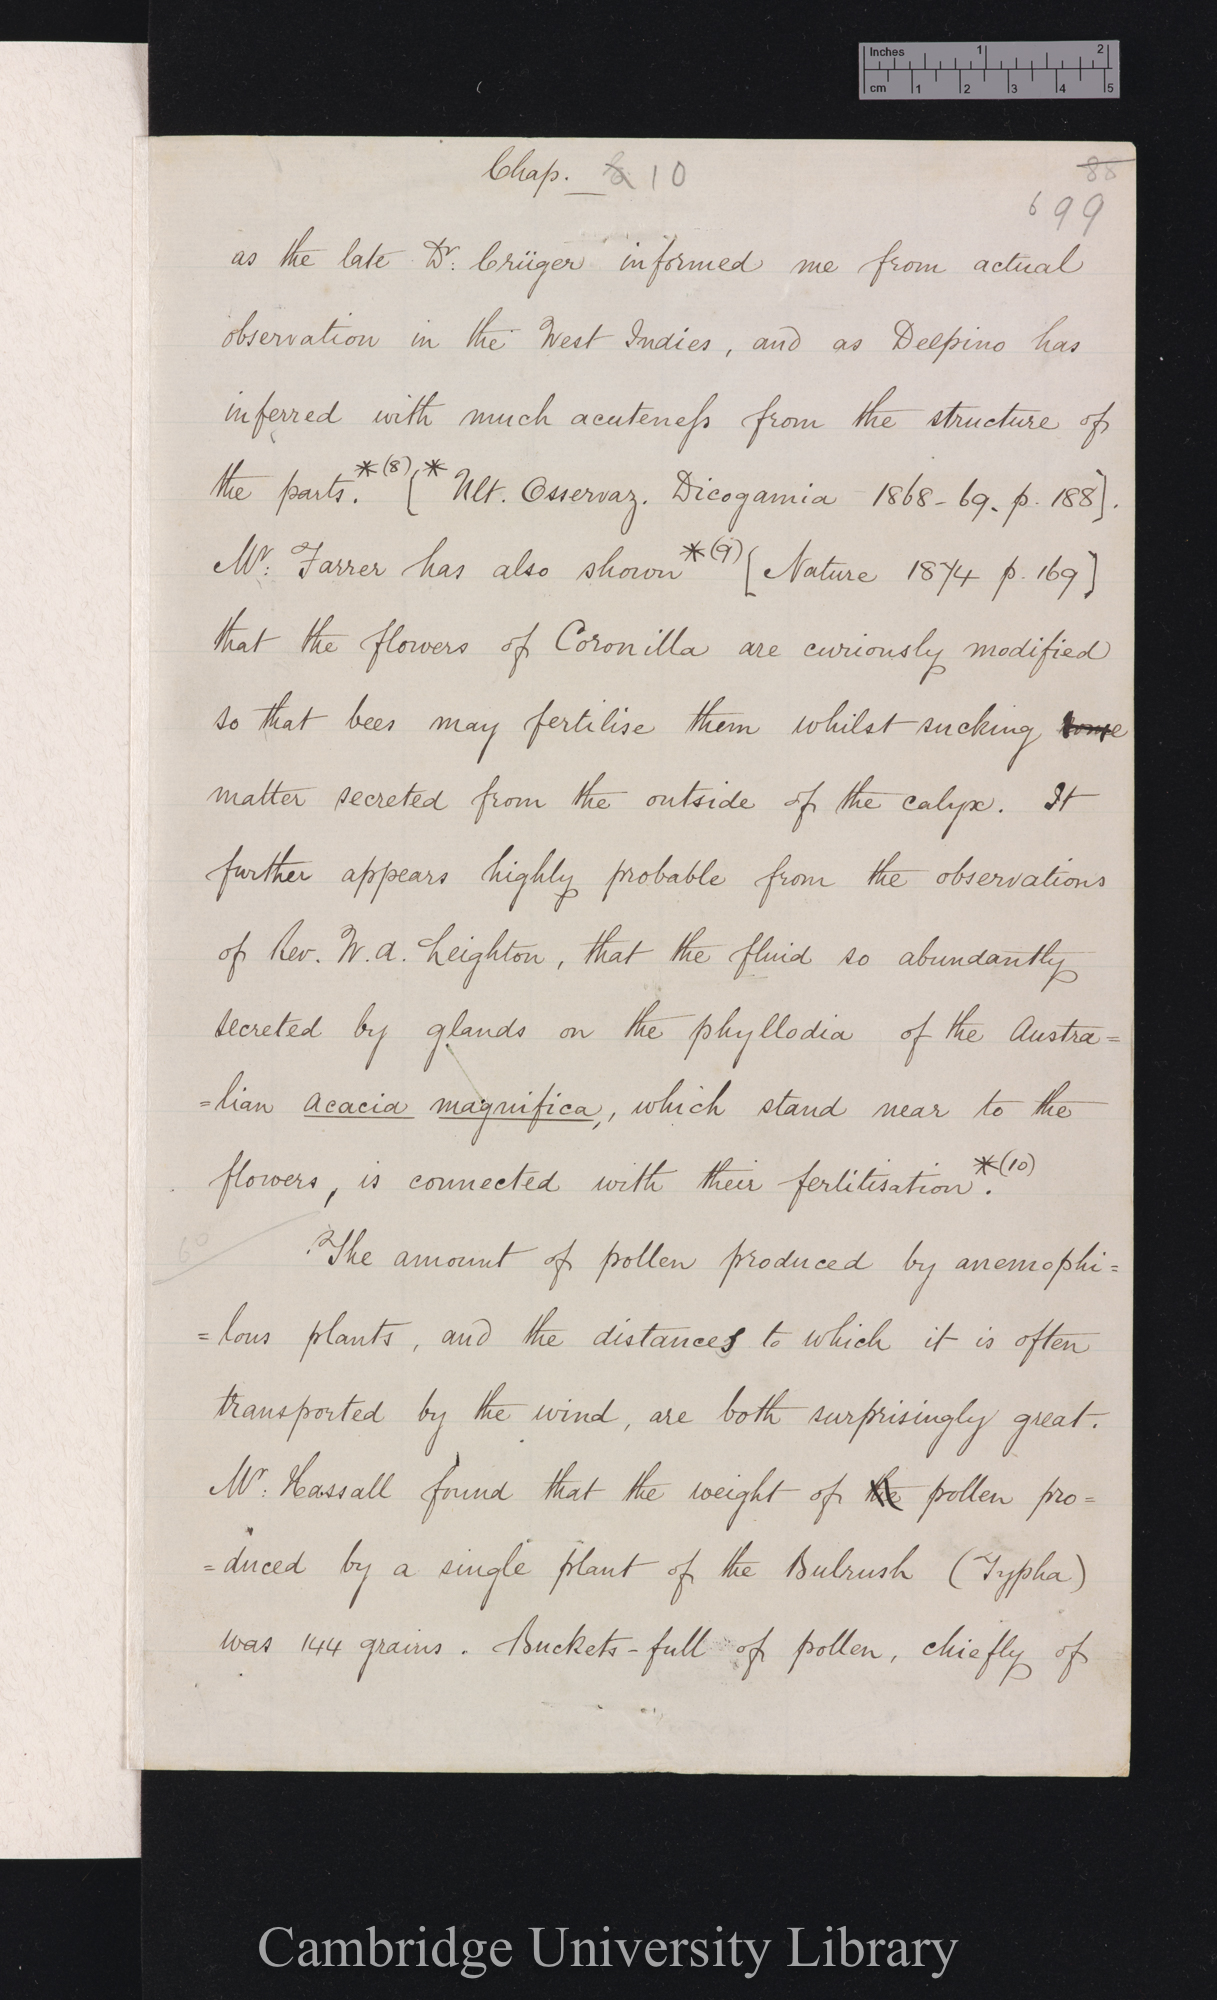 Inches 1 2
cm 1 2 3 4 5
Chap. 10
88
699
as the late Dr. Crüger informed me from actual
observation in the West Indies, and as Delpino has
inferred with much acuteneſs from the structure of
the parts.*(8) [* Ult. Osservaz. Dicogamia 1868-69. p. 188].
Mr. Farrer has also shown *(9) [Nature 1874 p. 169]
that the flowers of Coronilla are curiously modified
so that bees may fertilise them whilst sucking some
matter secreted from the outside of the calyx. It
further appears highly probable from the observations
of Rev. W. A. Leighton, that the fluid so abundantly
secreted by glands on the phyllodia of the Austra=
=lian Acacia magnifica, which stand near to the
flowers, is connected with their ferlitisation*(10).
60
The amount of pollen produced by anemophi=
=lous plants, and the distances to which it is often
transported by the wind, are both surprisingly great.
Mr. Hassall found that the weight of the pollen pro=
=duced by a single plant of the Bulrush (Typha)
was 144 grains. Buckets-full of pollen, chiefly of
Cambridge University Library